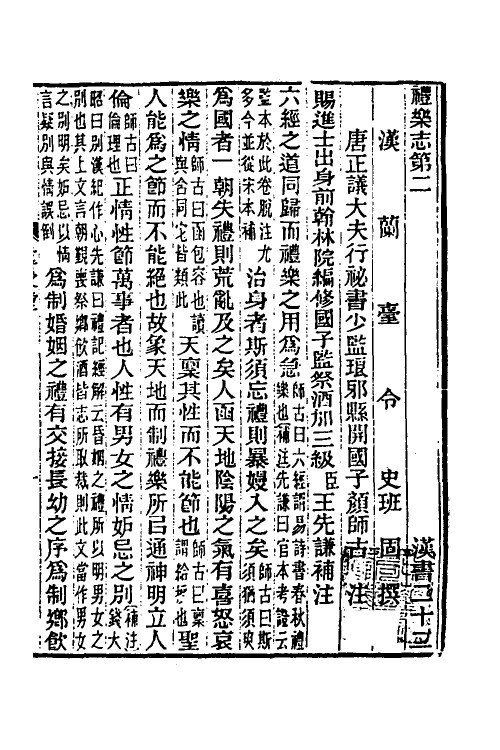 禮樂志第二　漢書二十二
漢蘭臺令史班固撰
唐正議大夫行祕書少監琅邪縣開國子顏師古注
賜進士出身前翰林院編修國子監祭酒加三級臣王先謙補注
六經之道同歸而禮樂之用爲急師古曰六經謂易詩書春秋禮樂也補注先謙曰官本考證云
監本於此卷脫注尤多今並從宋本補治身者斯須忘禮則暴嫚入之矣師古曰斯須猶須臾
爲國者一朝失禮則荒亂及之矣人函天地陰陽之氣有喜怒哀
樂之情師古曰函包容也讀與含同它皆類此天稟其性而不能節也師古曰稟謂給授也聖
人能爲之節而不能絕也故象天地而制禮樂所㠯通神明立人
倫師古曰倫理也正情性節萬事者也人性有男女之情妒忌之別補注錢大
昭曰別漢紀作心先謙曰禮記經解云昏姻之禮所以明男女之別也其上文言朝覲喪祭鄉飲酒皆志所取裁則此文當作男女
之別明矣妒忌以情言疑別與情誤倒爲制婚姻之禮有交接長幼之序爲制鄉飲